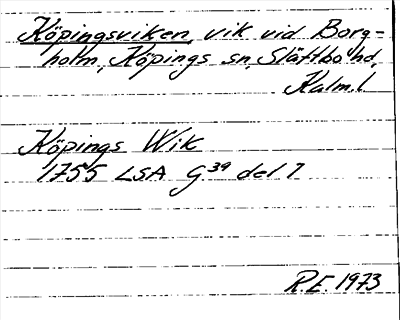 Köpingsviken, vik vid Borg=
holm, Köpings sn, Slättbo hd,
Kalm. l.
Köpings Wik
1755 LSA G 39 del 7
R.E. 1973